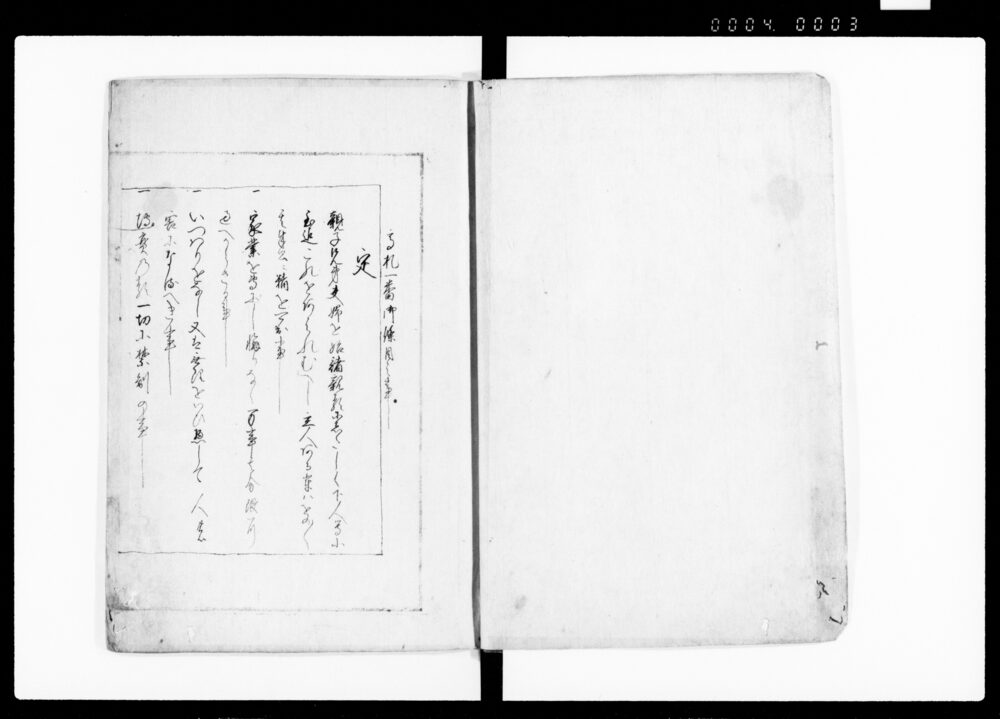 0004. 0003
高札一番御條目之事
定
一 親子兄弟夫婦を始諸親類にしたしく下人等に
至迄これをあはれむへし主人ある輩はをの〱
其奉公に精を可出事
一 家業を専にし懈る事なく万事其分限に
過へからさる事
一 いつはりをなし又は無理をいひ惣して人の
害になるへき事
一 博奕の類一切に禁制の事